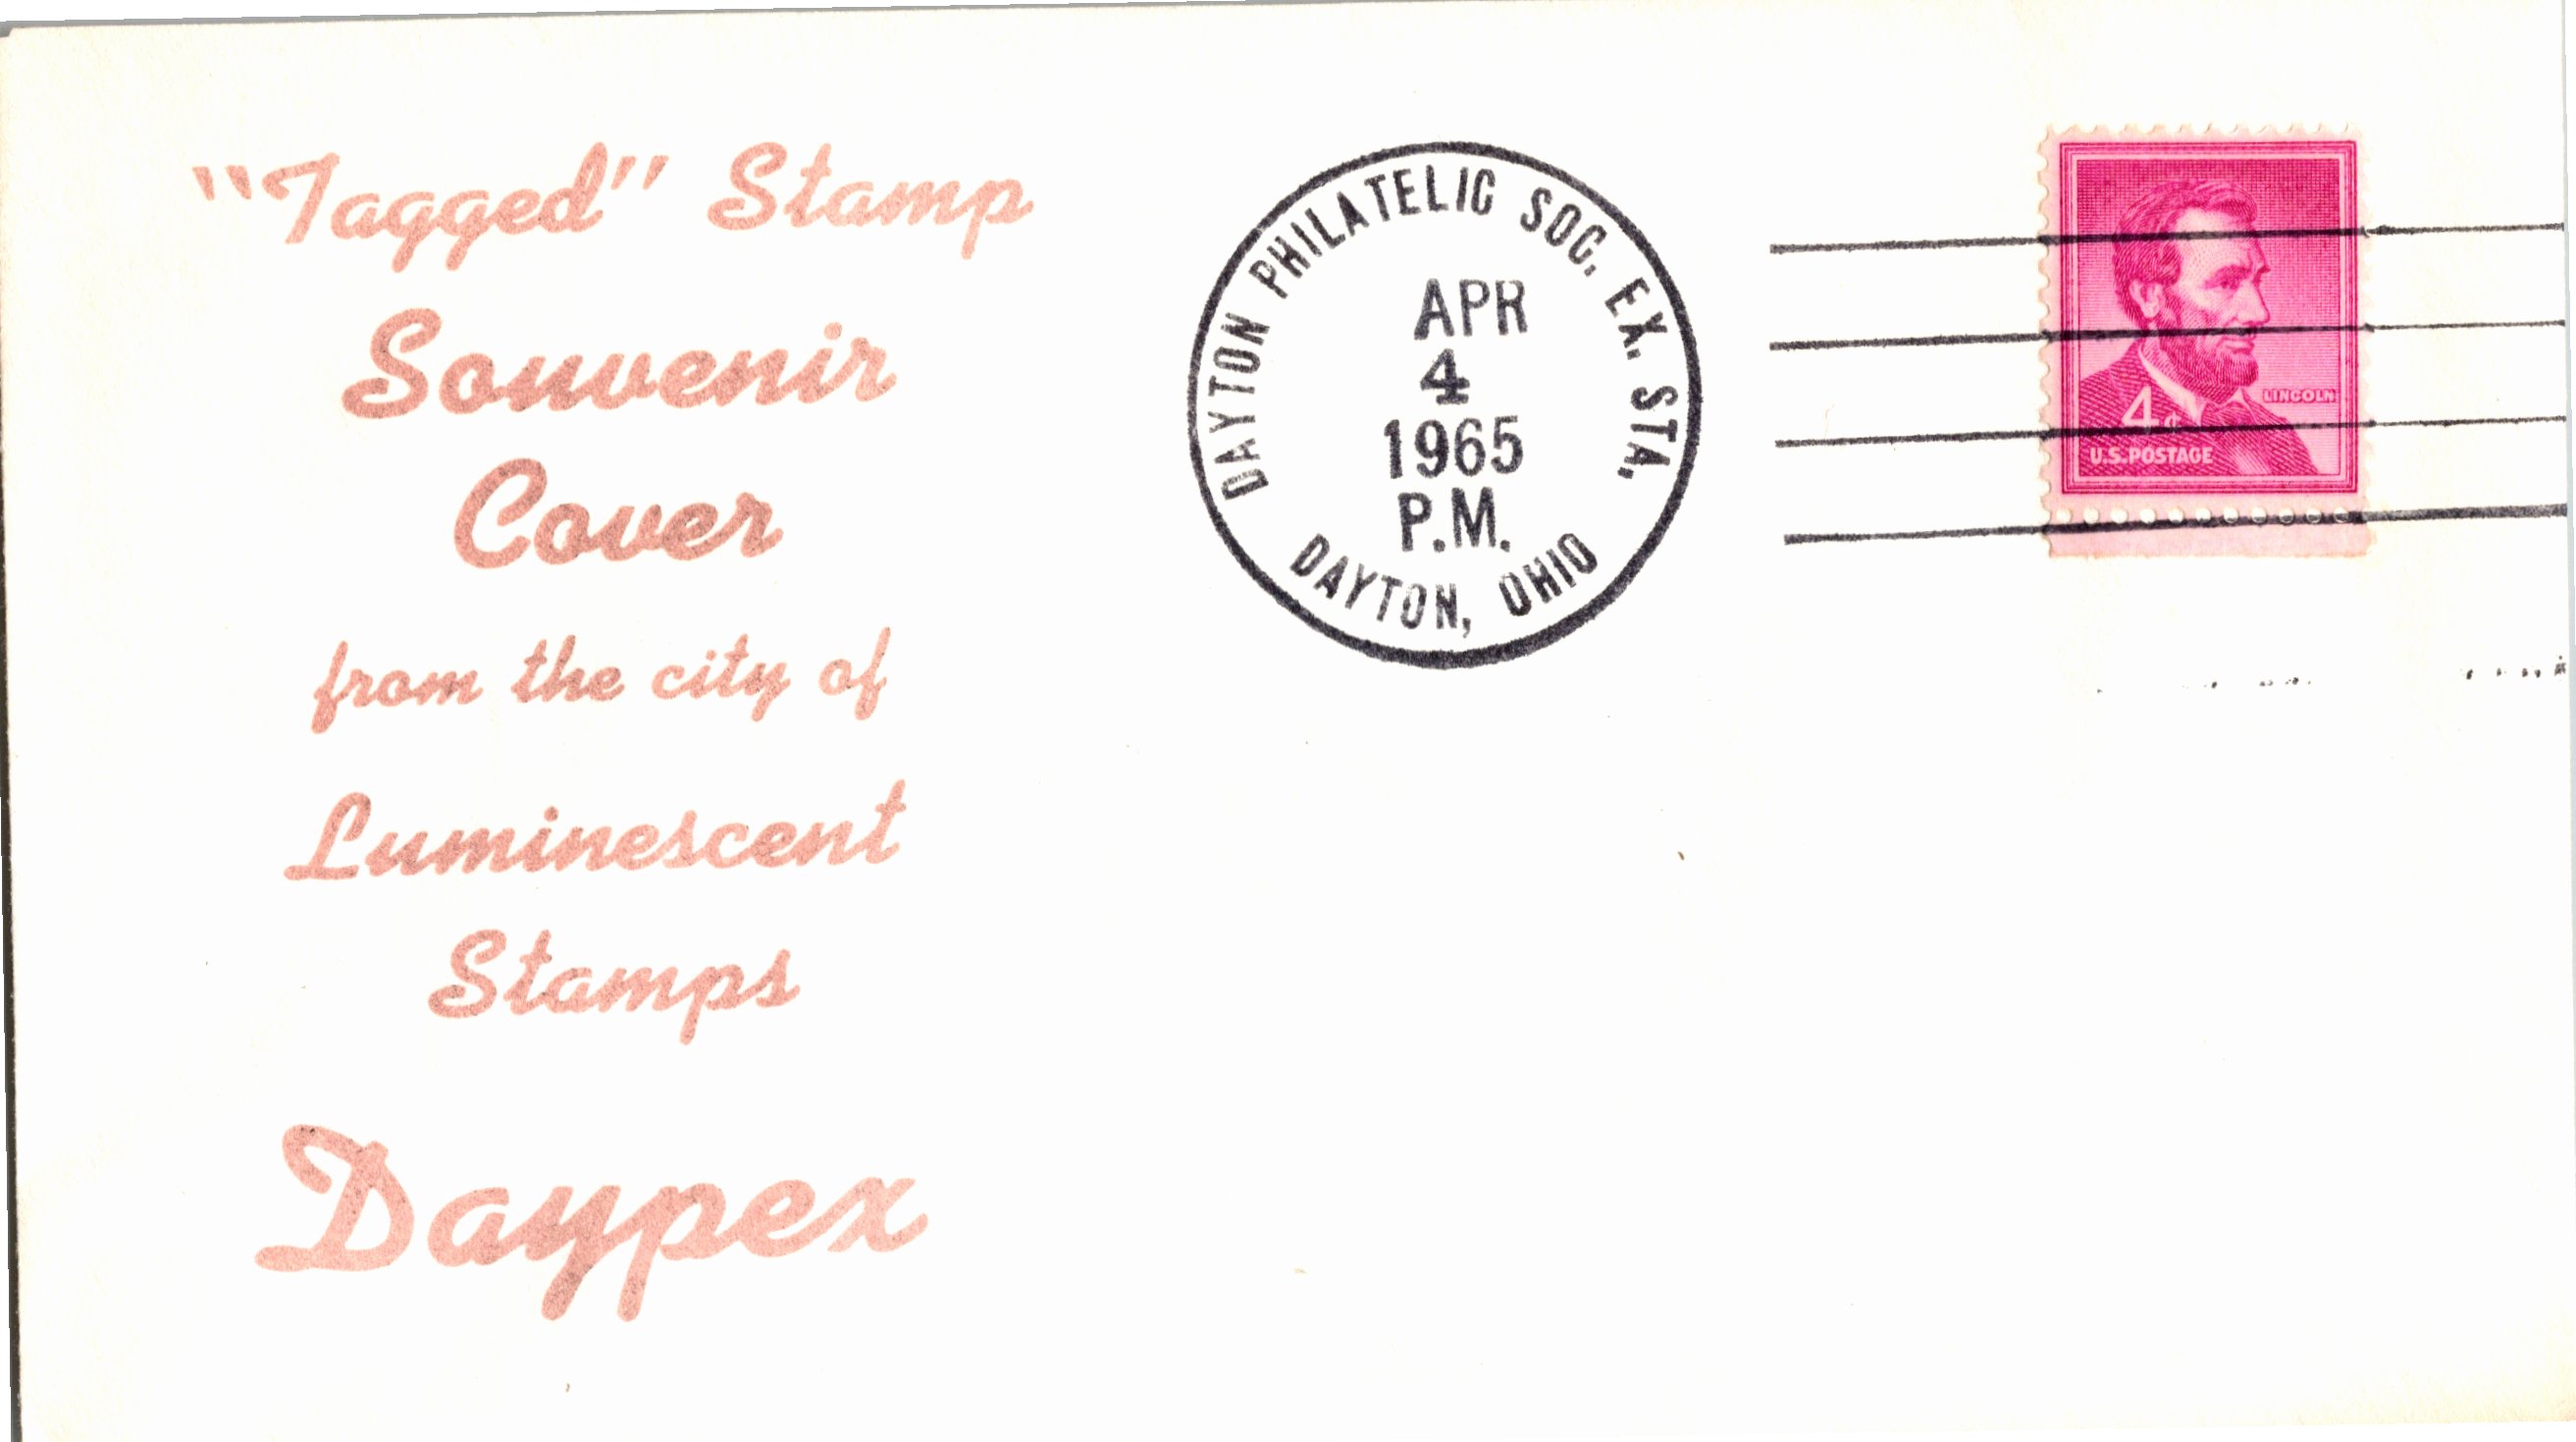 "Tagged" Stamp
Souvenir
Cover
from the city of
Luminescent
Stamps
Daypex
DAYTON PHILATELIC SOC. EX. STA.
APR
4
1965
P.M.
DAYTON, OHIO
LINCOLN
4¢
U.S. POSTAGE